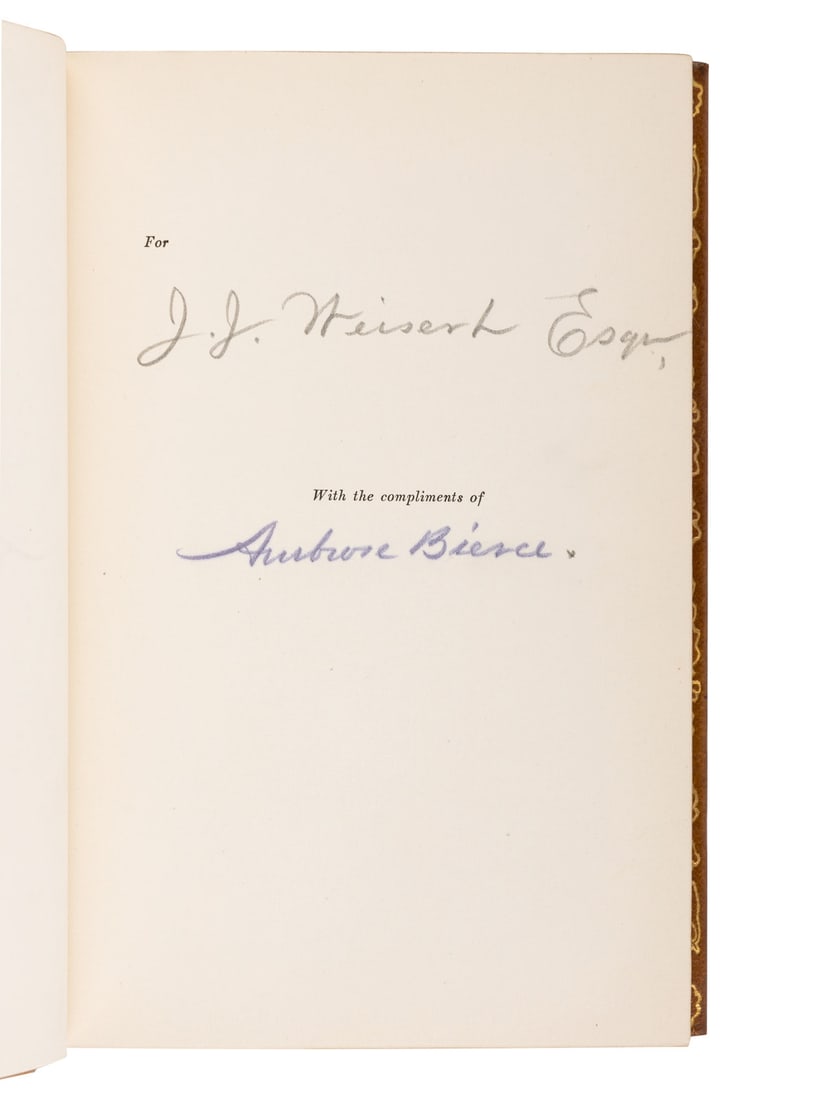 For
J. J. Weisert Esqr,
With the compliments of
Ambrose Bierce.